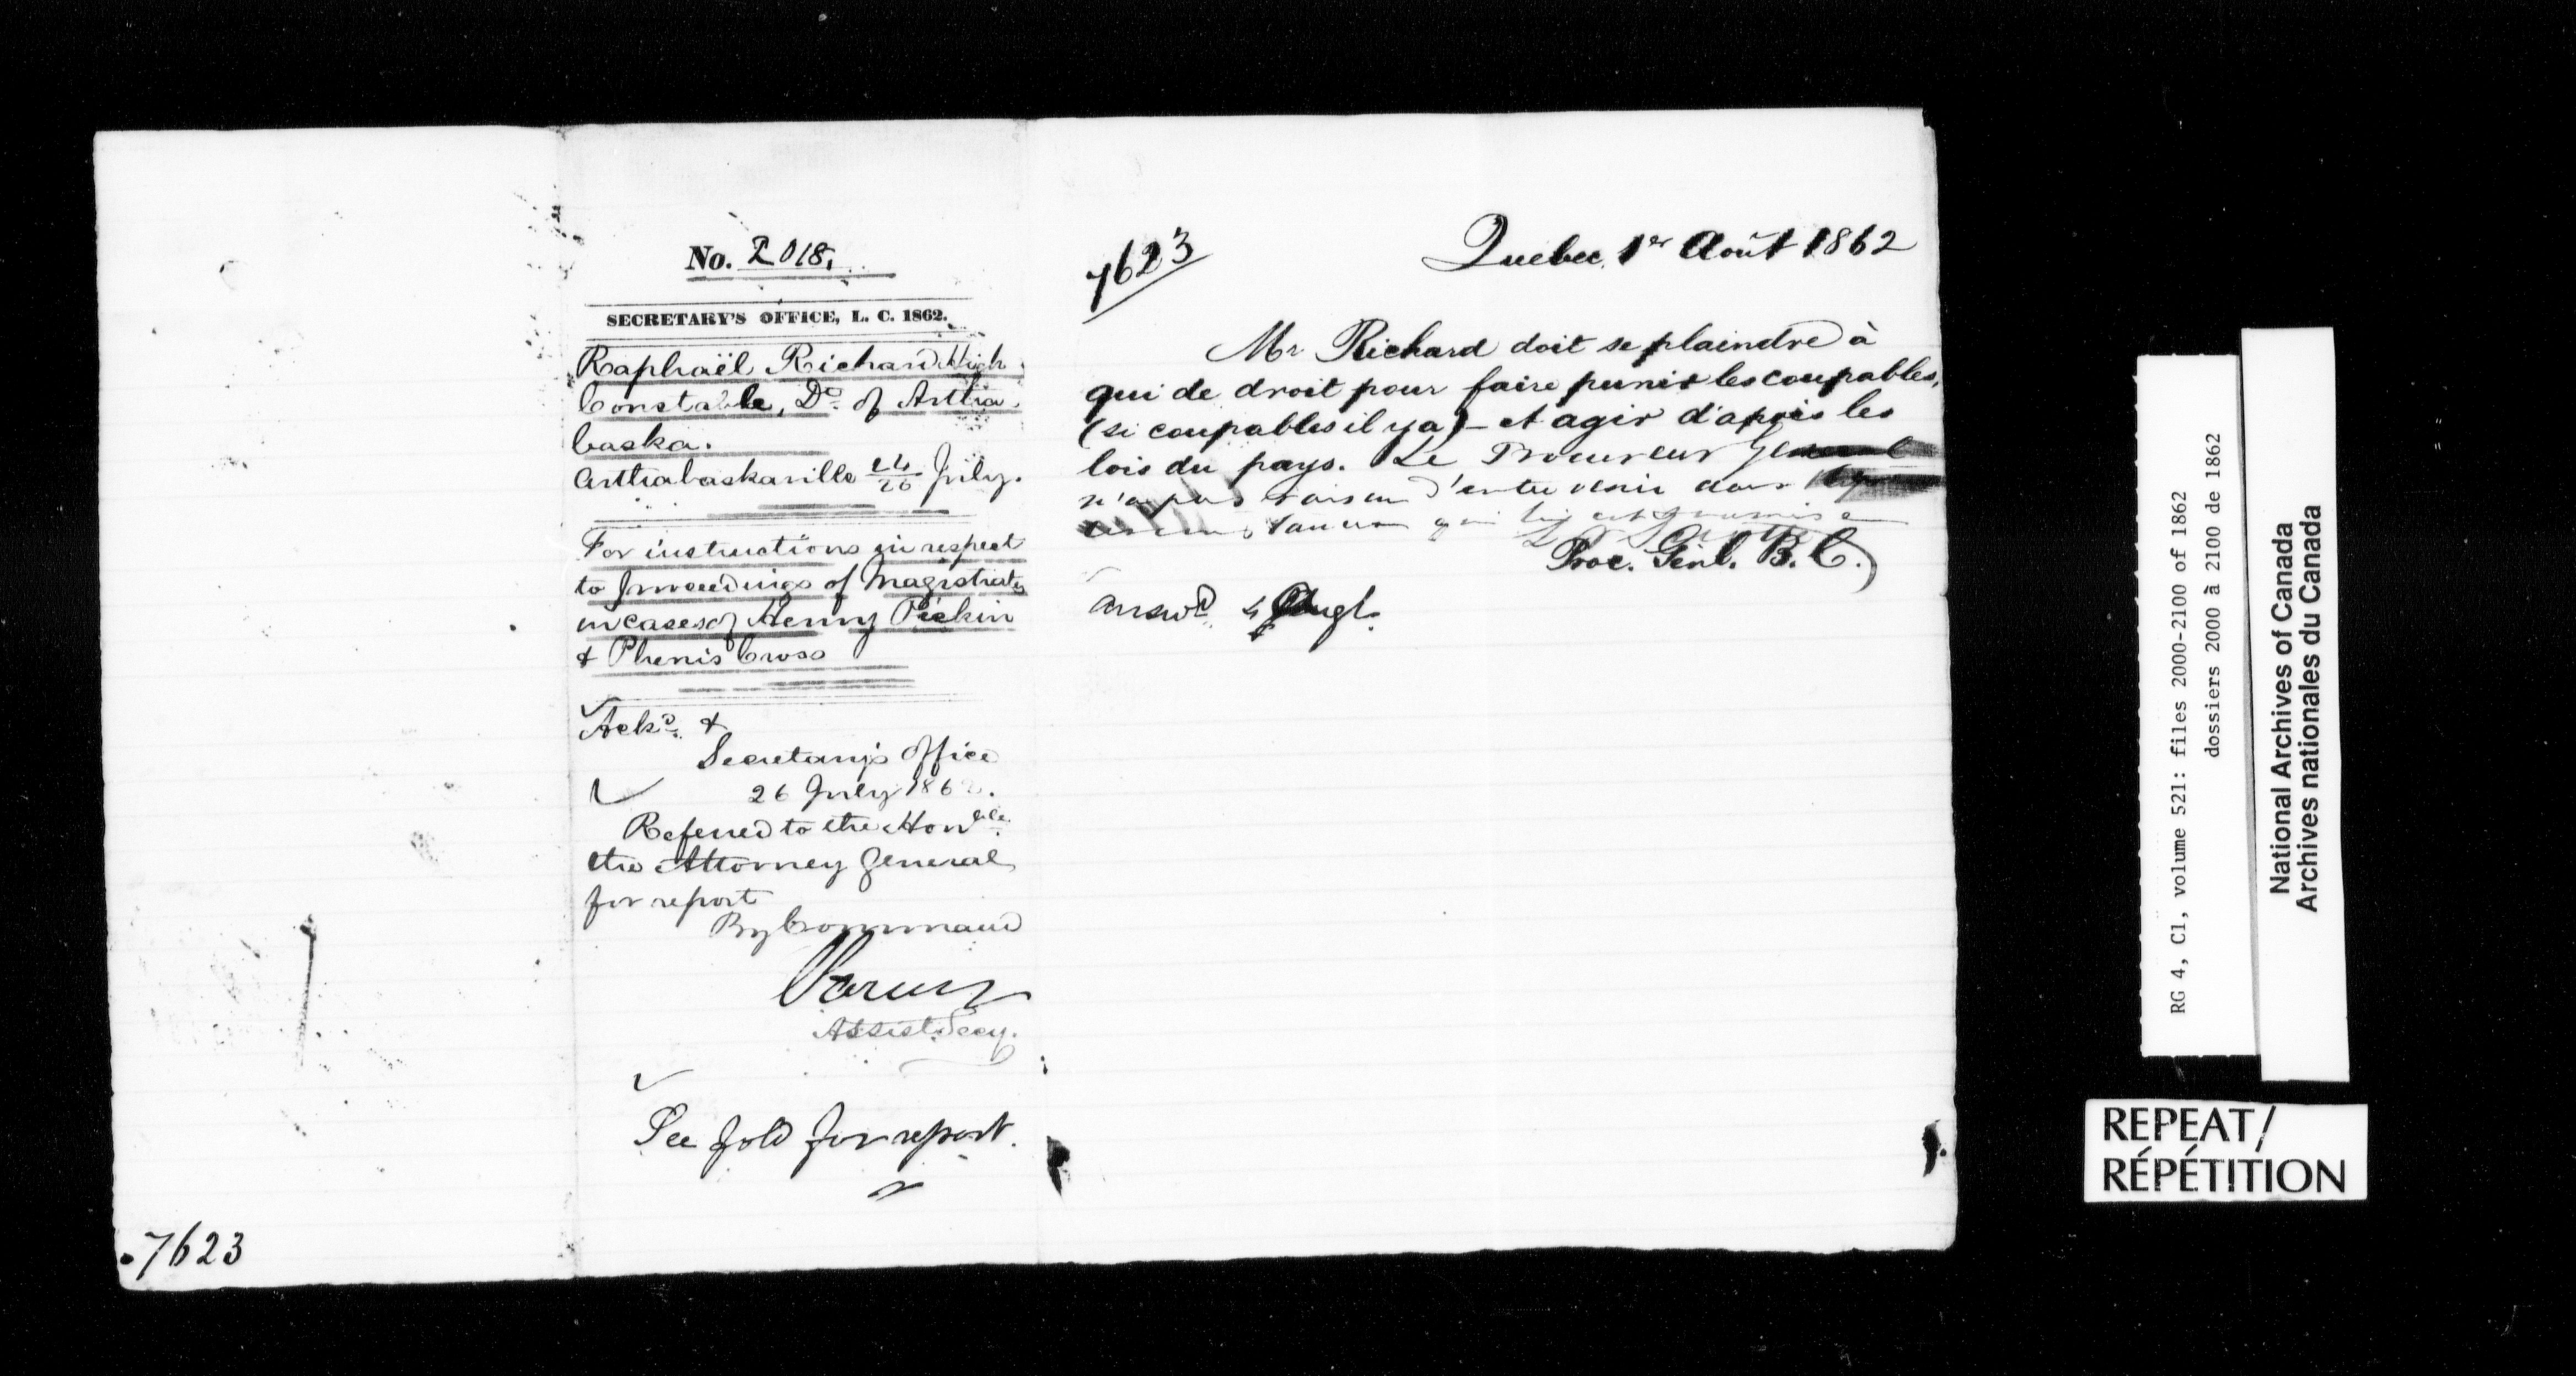 No. 2018.
SECRETARY'S OFFICE, L. C. 1862.
Raphaël Richard High
Constable, Do. of Artha
baska.
Arthabaskaville 24/26 July.
For instructions in respect
to proceedings of Magistrates
in cases of Henry Peekin
& Phenis Cross
Ackd. &
Secretary's Office
26 July 1862.
Referred to the Honble.
the Attorney General
for report
By Command
Assist. Secy.
See fold for report.
7623
7623
Quebec, 1er Août 1862
Mr Richard doit se plaindre à
qui de droit pour faire punir les coupables,
(si coupables il y a) – et agir d'après les
lois du pays. Le Procureur General
n'a pas raison d'intervenir dans
qui lui est
Proc. Genl. B. C.)
Answd. 4 Augt.
RG 4, C1, volume 521: files 2000-2100 of 1862
dossiers 2000 à 2100 de 1862
National Archives of Canada
Archives nationales du Canada
REPEAT/
RÉPÉTITION